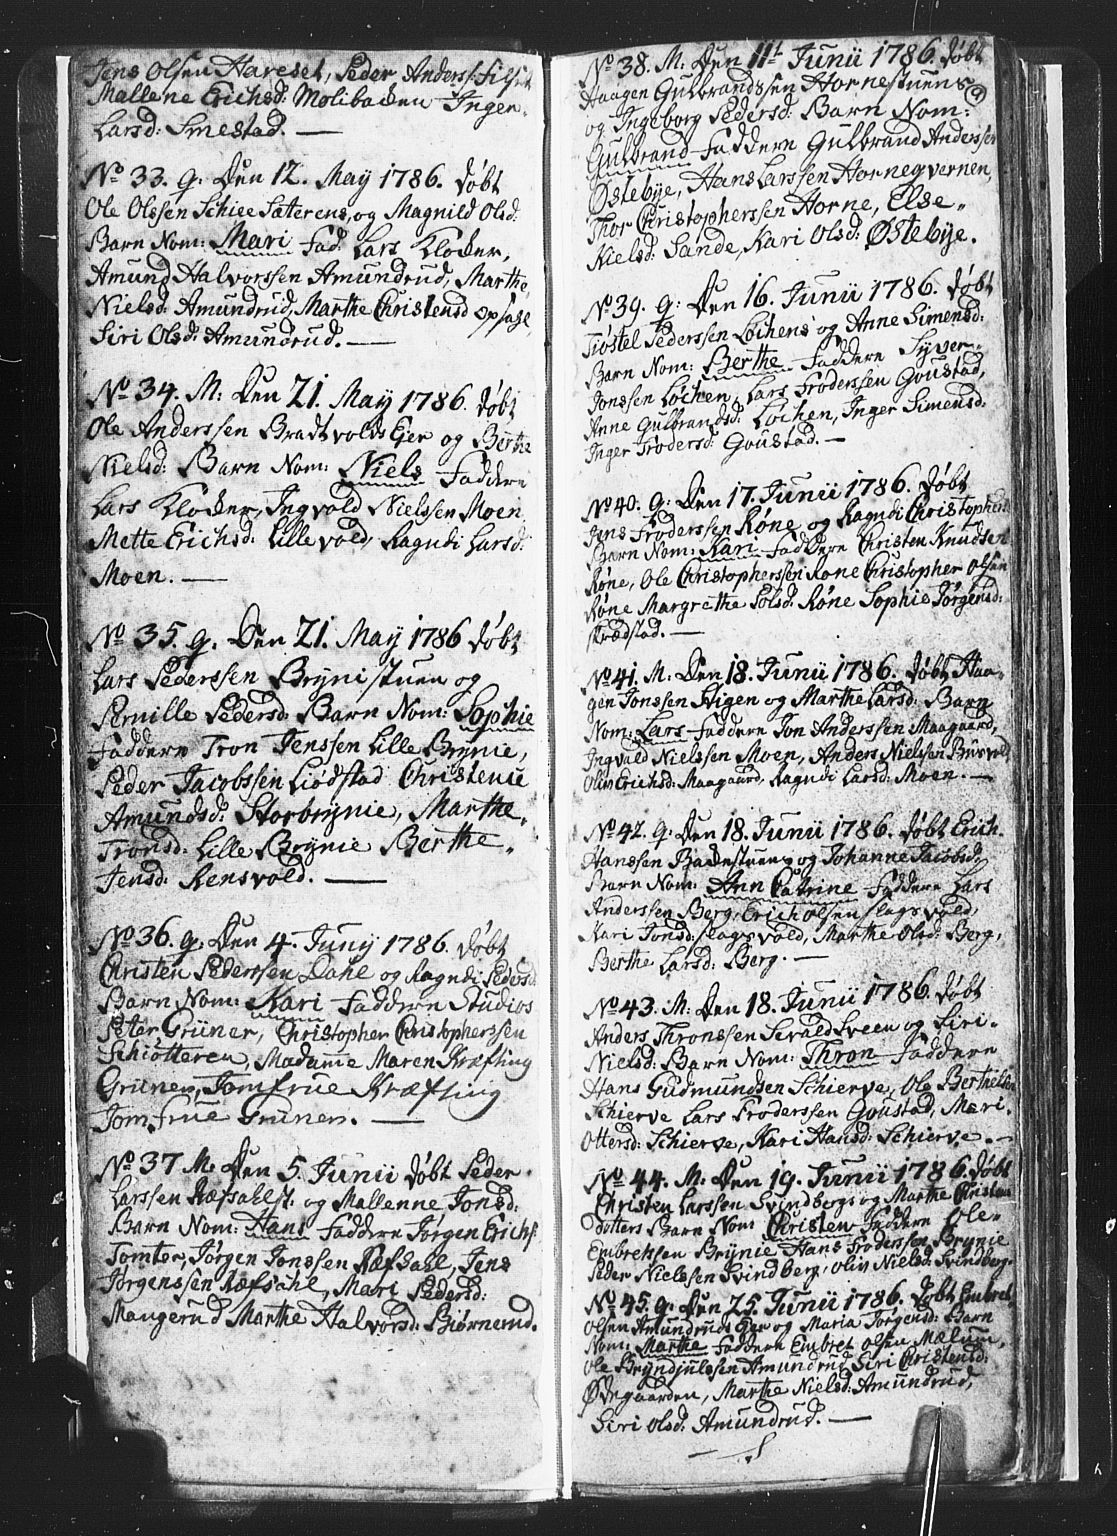 Jens Olsen Hareset, Peder Anderss: Silset
Mallene Erichsd: Molibacken Inger
Larsd: Smestad. —
No 33. g. Den 12. May 1786. døbt
Ole Olssen Schiee Sæterens, og Magnild Olsd:
Barn Nom: Mari Fad. Lars Klocker,
Amund Halvorssen Amundrud, Marthe
Nielsd: Amundrud, Marthe Christensd Opsage
Siri Olsd: Amundrud. —
No 34. M: Den 21. May 1786. døbt
Ole Anderssen Bradtvolds Ejer og Berthe
Nielsd: Barn Nom: Niels Faddere
Lars Klocker, Ingvold Nielssen Moen
Mette Erichsd: Lillevold, Ragndi Larsd:
Moen. —
No 35. g. Den 21. May 1786 døbt
Lars Pederssen Brynistuen og
Pernille Pedersd: Barn Nom: Sophie
Faddere Tron Jenssen Lille Brynie,
Peder Jacobssen Liødstad Christenie
Amundsd: Storbrynie, Marthe
Tronsd: Lille Brynie Berthe
Jensd: Rensvold. —
No 36. g. Den 4. Juny 1786. døbt
Christen Pederssen Dahl og Ragndi Pedersd:
Barn Nom: Kari Faddere Studios
Peter Grüner, Christopher Christopherssen
Schiøtteren, Madame Maren Kræfting
Grüner, Jomfrue Kræfting
Jomfrue Grüner. —
No 37 M. Den 5. Junii døbt Peder
Larssen Ræfsahlst: og Mallenne Jonsd:
Barn Nom: Hans Faddere Jørgen Erichs:
Tomter, Jørgen Jonssen Ræfsahl, Jens
Jørgenssen Ræfsahl, Mari Pedersd:
Maugerud Marthe Halvorsd: Biørnerud.
No 38. M. Den 11t Junii 1786. døbt
Haagen Gulbrandssen Hornestuens
9
og Ingeborg Pedersd: Barn Nom:
Gulbrand Faddere Gulbrand Anderssen
Østebye, Hans Larssen Hornegvernen,
Thor Christopherssen Horne, Else
Nielsd: Sande, Kari Olsd: Østebye.
No 39. g: Den 16. Junii 1786. døbt
Tiøstel Pederssen Lochens og Anne Simensd:
Barn Nom: Berthe Faddere Syver
Jonssen Lochen, Lars Froderssen Goustad,
Anne Gulbrandsd: Lochen, Inger Simensd:
Inger Frodersd: Goustad. —
No 40. g: Den 17. Junii 1786. døbt
Jens Froderssen Røne og Ragndi Christophers:
Barn Nom: Kari Faddere Christen Knudsen
Røne, Ole Christopherssen Røne Christopher Olsen
Røne Margrethe Polsd: Røne Sophie Jørgensd:
Skrædstad. —
No 41. M: Den 18. Junii 1786. døbt Haa-
gen Jonssen Stigen og Marthe Larsd: Barn
Nom: Lars Faddere Jon Anderssen Maagaard,
Ingvald Nielssen Moen, Anders Nielsen Burvold
Olin Erichsd: Maagaard, Ragndi Larsd: Moen. —
No 42. g: Den 18. Junii 1786. døbt Erich
Hanssen Backestuen og Johanne Jacobsd:
Barn Nom: Ann Catrine Faddere Lars
Anderssen Berg, Erich Olsen Slagsvold,
Kari Jonsd: Slagsvold, Marthe Olsd: Berg,
Berthe Larsd: Berg. —
No 43. M: Den 18. Junii 1786. døbt
Anders Thronssen Sevaldsveen og Siri
Nielsd: Barn Nom: Thron Faddere
Hans Gudmundsen Schierve, Ole Berthelsen
Schierve Lars Froderssen Goustad, Mari
Ottersd: Schierve, Kari Hansd: Schierve. —
No 44. M: Den 19. Junii 1786. døbt
Christen Larssen Svindberg og Marthe Christen
dotters Barn Nom Christen Faddere Ole
Embretssen Brynie Hans Froderssen Brynie
Peder Nielssen Svindberg, Olin Nielsd: Svindberg.
No 45. g. Den 25. Junii 1786. døbt Embret
Olsen Amundruds Ejer og Maria Jørgensd: Barn
Nom: Marthe Faddere Embret Olsen Mælum,
Ole Bryndjulssen Amundrud Siri Christensd:
Ødegaarden, Marthe Nielsd: Amundrud,
Siri Olsd: Amundrud. —